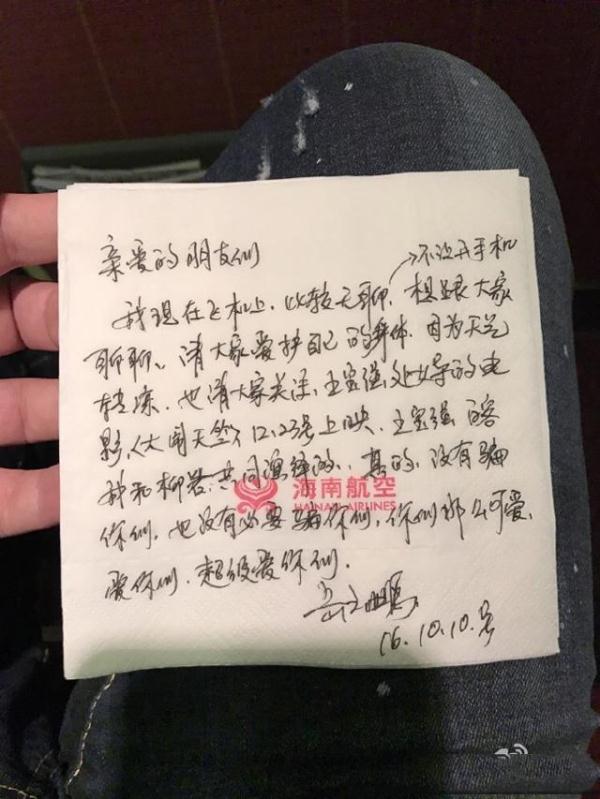 亲爱的朋友们
不让开手机
我现在飞机上，比较无聊，想跟大家
聊聊。请大家爱护自己的身体，因为天气
转凉，也请大家关注，王宝强处女导的电
影《大闹天竺》12.23号上映，王宝强 白客
我和柳岩共同演绎的，真的，没有骗
海南航空
HAINAN AIRLINES
你们，也没有必要骗你们，你们那么可爱，
爱你们，超级爱你们，
岳云鹏
16.10.10.号